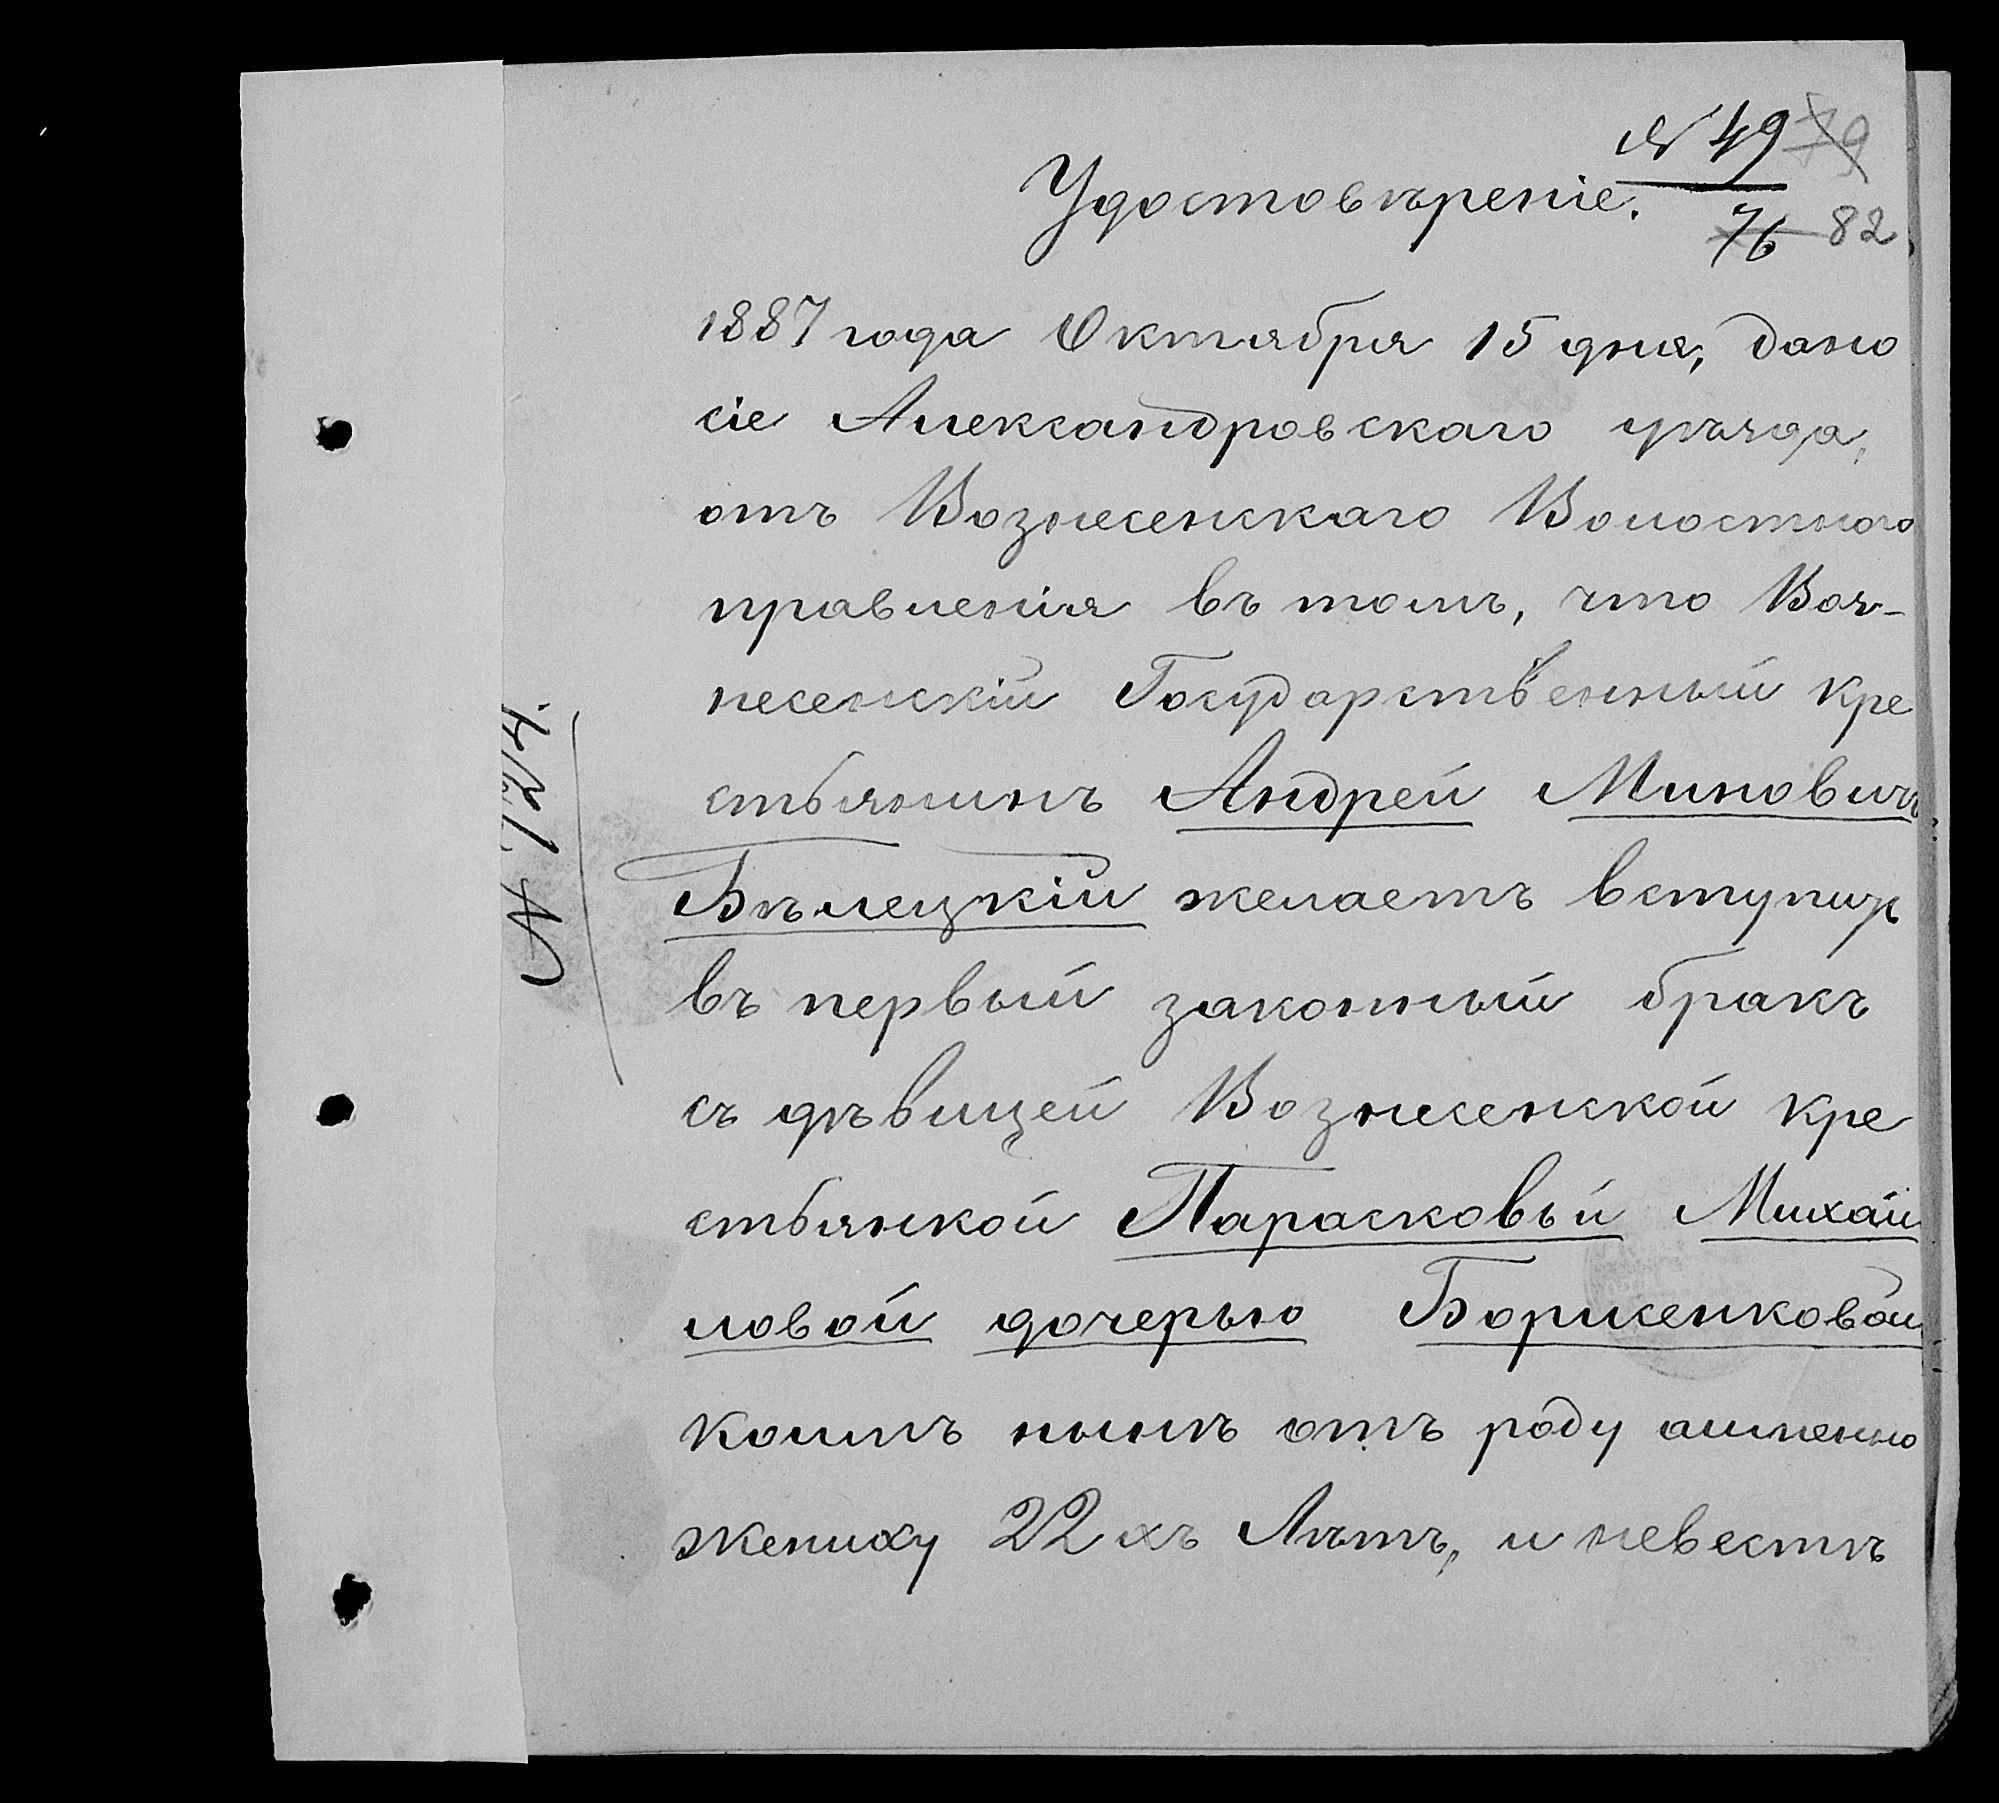 № 49 79
Удостовѣреніе.
76 82
1887 года Октября 15 дня, дано
сіе Александровскаго уѣзда,
отъ Вознесенскаго Волостного
правленія въ томъ, что Воз-
несенскій Государственный кре
стьянинъ Андрей Миновичъ
Бѣлецкій желаетъ вступить
въ первый законный бракъ
съ дѣвицей Вознесенской кре
стьянкой Парасковьй Михай
ловой дочерью Борисенковой
коимъ нынѣ отъ роду аименно
жениху 22 хъ Лѣтъ, и невестѣ